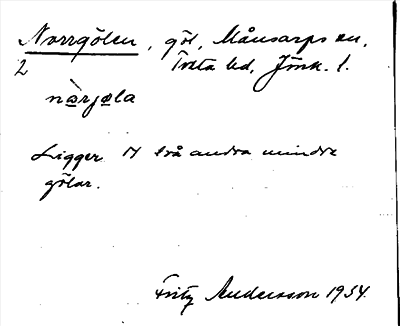 Norrgölen, göl, Månsarps sn,
2 Tveta hd, Jönk. l.
nàrjøla
Ligger N två andra mindre
gölar.
Fritz Andersson 1934.